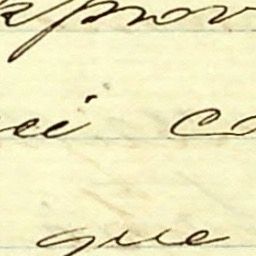 aprov
ei co
que